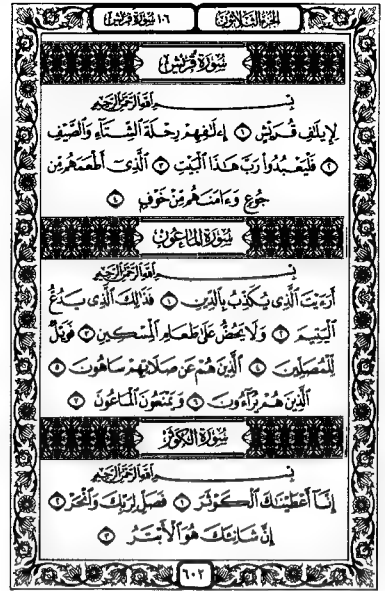 الجزء الثلاثون ١٠٦ سورة قريش
سورة قريش
بِسْمِ ٱللَّهِ ٱلرَّحْمَٰنِ ٱلرَّحِيمِ
لِإِيلَٰفِ قُرَيْشٍ ١ إِۦلَٰفِهِمْ رِحْلَةَ ٱلشِّتَآءِ وَٱلصَّيْفِ
٢ فَلْيَعْبُدُوا۟ رَبَّ هَٰذَا ٱلْبَيْتِ ٣ ٱلَّذِىٓ أَطْعَمَهُم مِّن
جُوعٍ وَءَامَنَهُم مِّنْ خَوْفٍۭ ٤
سورة الماعون
بِسْمِ ٱللَّهِ ٱلرَّحْمَٰنِ ٱلرَّحِيمِ
أَرَءَيْتَ ٱلَّذِى يُكَذِّبُ بِٱلدِّينِ ١ فَذَٰلِكَ ٱلَّذِى يَدُعُّ
ٱلْيَتِيمَ ٢ وَلَا يَحُضُّ عَلَىٰ طَعَامِ ٱلْمِسْكِينِ ٣ فَوَيْلٌ
لِّلْمُصَلِّينَ ٤ ٱلَّذِينَ هُمْ عَن صَلَاتِهِمْ سَاهُونَ ٥
ٱلَّذِينَ هُمْ يُرَآءُونَ ٦ وَيَمْنَعُونَ ٱلْمَاعُونَ ٧
سورة الكوثر
بِسْمِ ٱللَّهِ ٱلرَّحْمَٰنِ ٱلرَّحِيمِ
إِنَّآ أَعْطَيْنَٰكَ ٱلْكَوْثَرَ ١ فَصَلِّ لِرَبِّكَ وَٱنْحَرْ ٢
إِنَّ شَانِئَكَ هُوَ ٱلْأَبْتَرُ ٣
٦٠٢